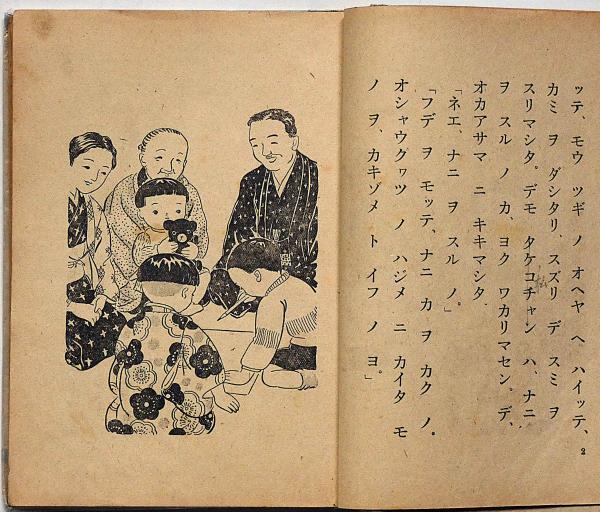 ッテ、モウ ツギ ノ オヘヤ ヘ ハイッテ、
カミ ヲ ダシタリ、スズリ デ スミ ヲ
スリマシタ。デモ タケコチャン ハ、ナニ
ヲ スル ノ カ、ヨク ワカリマセン。デ、
オカアサマ ニ キキマシタ。
「ネエ、ナニ ヲ スル ノ。」
「フデ ヲ モッテ、ナニ カ ヲ カク ノ。
オシャウグヮツ ノ ハジメ ニ カイタ モ
ノ ヲ、カキゾメ ト イフ ノ ヨ。」
2